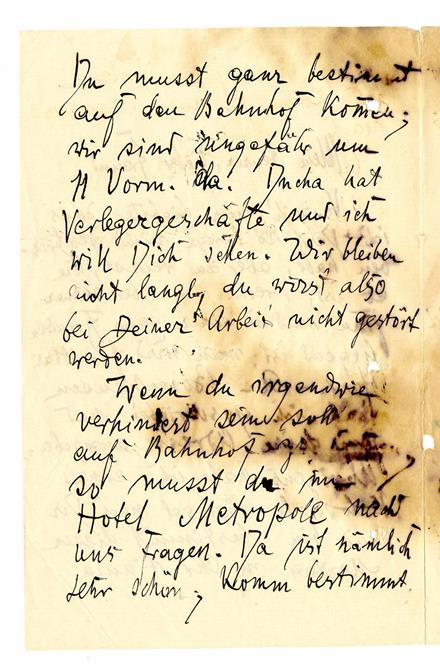 Du musst ganz bestimmt
auf den Bahnhof komen,
wir sind ungefähr um
11 Vorm. da. Ducha hat
Verlegergeschäfte und ich
will Dich sehen. Wir bleiben
nicht lange, du wirst also
bei Deiner Arbeit nicht gestört
werden.
Wenn du irgendwie
verhindert sein soll
auf Bahnhof
so musst du im
Hotel Metropole nach
uns fragen. Da ist nämlich
sehr schön, Komm bestimmt